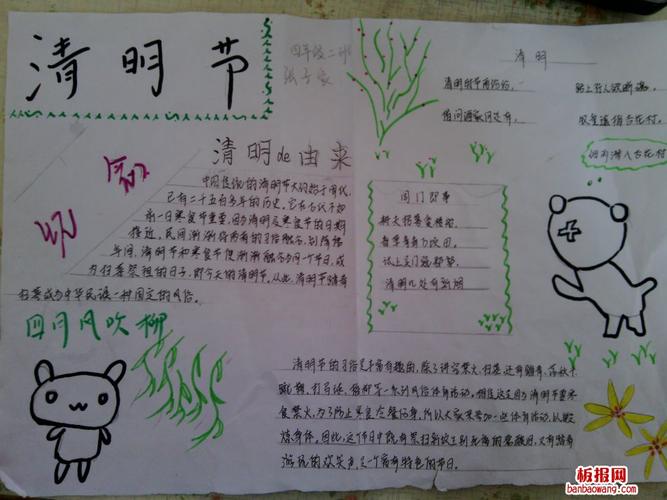 清明节
四年级二班
清明
清明时节雨纷纷，
路上行人欲断魂，
借问酒家何处有，
牧童遥指杏花村。
清明de由来
中国传统的清明节大约始于周代，
已有二千五百多年的历史。
前一日寒食节重要，因为清明及寒食节的日期
接近，民间渐渐将两者的习俗融合，到隋唐
年间，清明节和寒食节便渐渐融合为同一个节日，成
为扫墓祭祖的日子，即今天的清明节。从此，清明节踏青
扫墓成为中华民族一种固定的风俗。
四月风吹柳
闾门即事
清明几处有新烟
清明节的习俗是丰富有趣的，除了讲究禁火、扫墓，还有踏青、荡秋千
蹴鞠、打马球、插柳等一系列风俗体育活动。相传这是因为清明节要寒
食禁火，为了防止寒食冷餐伤身，所以大家来参加一些体育活动，以锻
炼身体。因此，这个节日中既有祭扫新坟生别死离的悲酸泪，又有踏青
游玩的欢笑声，是一个富有特色的节日。
板报网
banbaowang.com